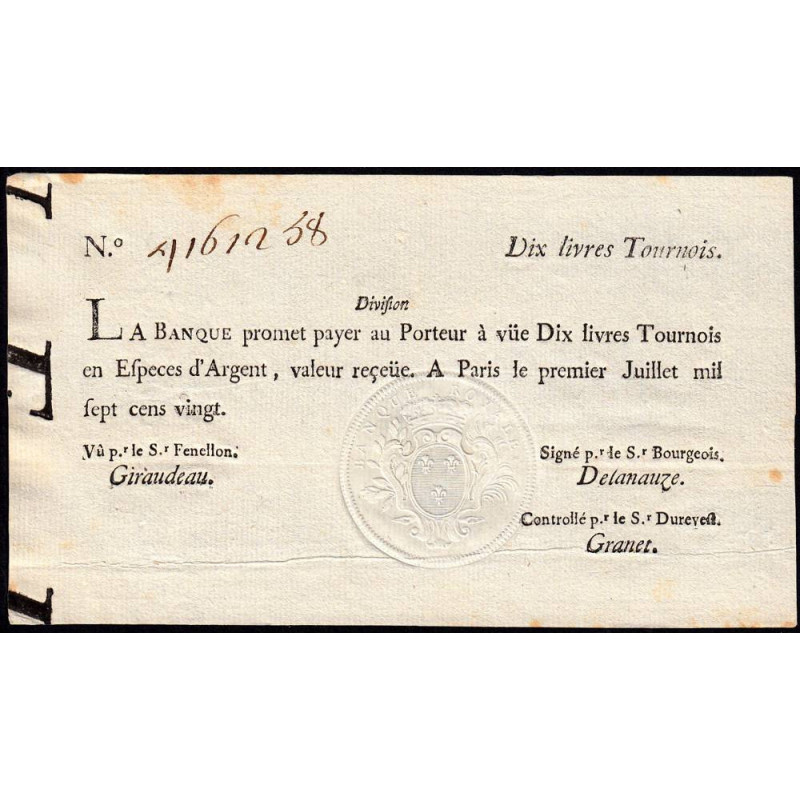 N.º 4161258 Dix livres Tournois.
Diviſion
LA BANQUE promet payer au Porteur à vüe Dix livres Tournois
en Eſpeces d'Argent, valeur reçeüe. A Paris le premier Juillet mil
ſept cens vingt.
Vû p.r le S.r Fenellon.
Giraudeau.
Signé p.r le S.r Bourgeois.
Delanauze.
Controllé p.r le S.r Durevest.
Granet.
BANQUE ROYALE